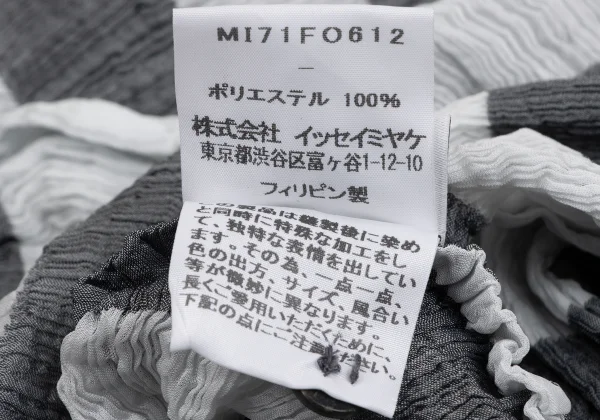 MI71FO612
—
ポリエステル 100%
株式会社 イッセイミヤケ
東京都渋谷区富ヶ谷1-12-10
フィリピン製
の製品は縫製後に染め
と同時に特殊な加工をし
て、独特な表情を出してい
ます。その為、一点一点、
色の出方、サイズ、風合い
等が微妙に異なります。
長くご愛用いただくために、
下記の点にご注意ください。